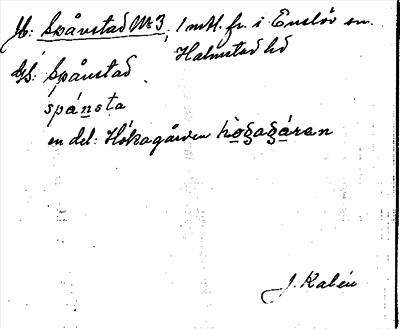 Jb: Spånstad № 3, 1 mtl. fr. i Enslöv sn.
Halmstad hd
Gs: Spånstad
spánsta
en del: Hökagården hògagáran
J. Kalén